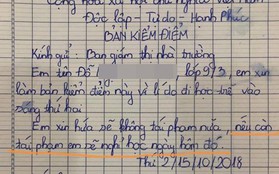 Cộng hoà xã hội chủ nghĩa Việt Nam
Độc lập - Tự do - Hạnh Phúc
BẢN KIỂM ĐIỂM
Kính gửi: Ban giám thị nhà trường
Em tên Đỗ lớp 9/3, em xin
làm bản kiểm điểm này vì lí do đi học trễ vào
sáng thứ hai
Em xin hứa sẽ không tái phạm nữa, nếu còn
tái phạm em sẽ nghỉ học ngay hôm đó.
Thứ 2/15/10/2018